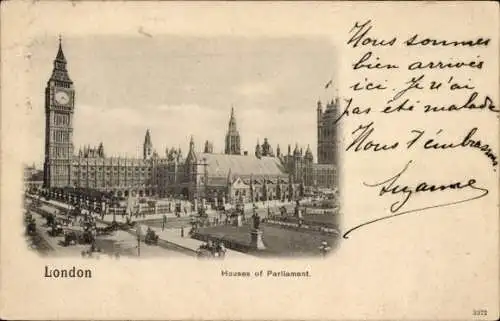 Nous sommes
bien arrivés
ici je n'ai
pas été malade
Nous t'embrassons
Suzanne
London
Houses of Parliament.